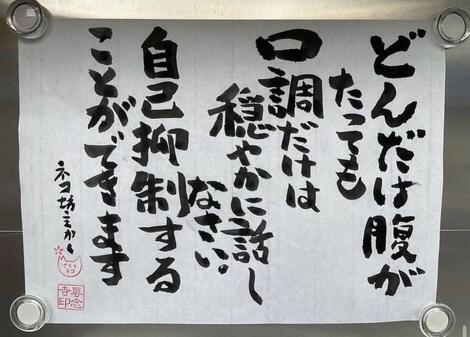 どんだけ腹が
たっても
口調だけは
穏やかに話し
なさい。
自己抑制する
ことができます
ネコ坊主かく
さくら
ネコ